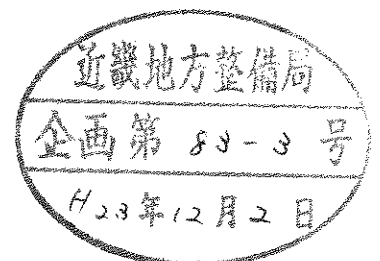 近畿地方整備局
企画第 83-3 号
H23年12月2日